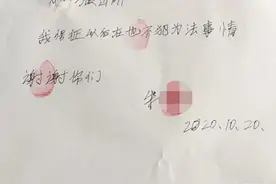 我保证以后在也不犯为法事情
谢谢你们
2020.10.20.